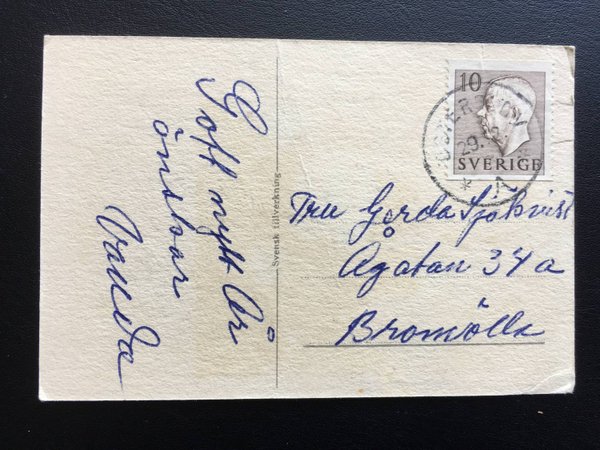 Gott nytt År
önskar
Vanda
Svensk tillverkning
10
SVERIGE
29.
A
Fru Gerda Sjökvist
Ågatan 34 a
Bromölla